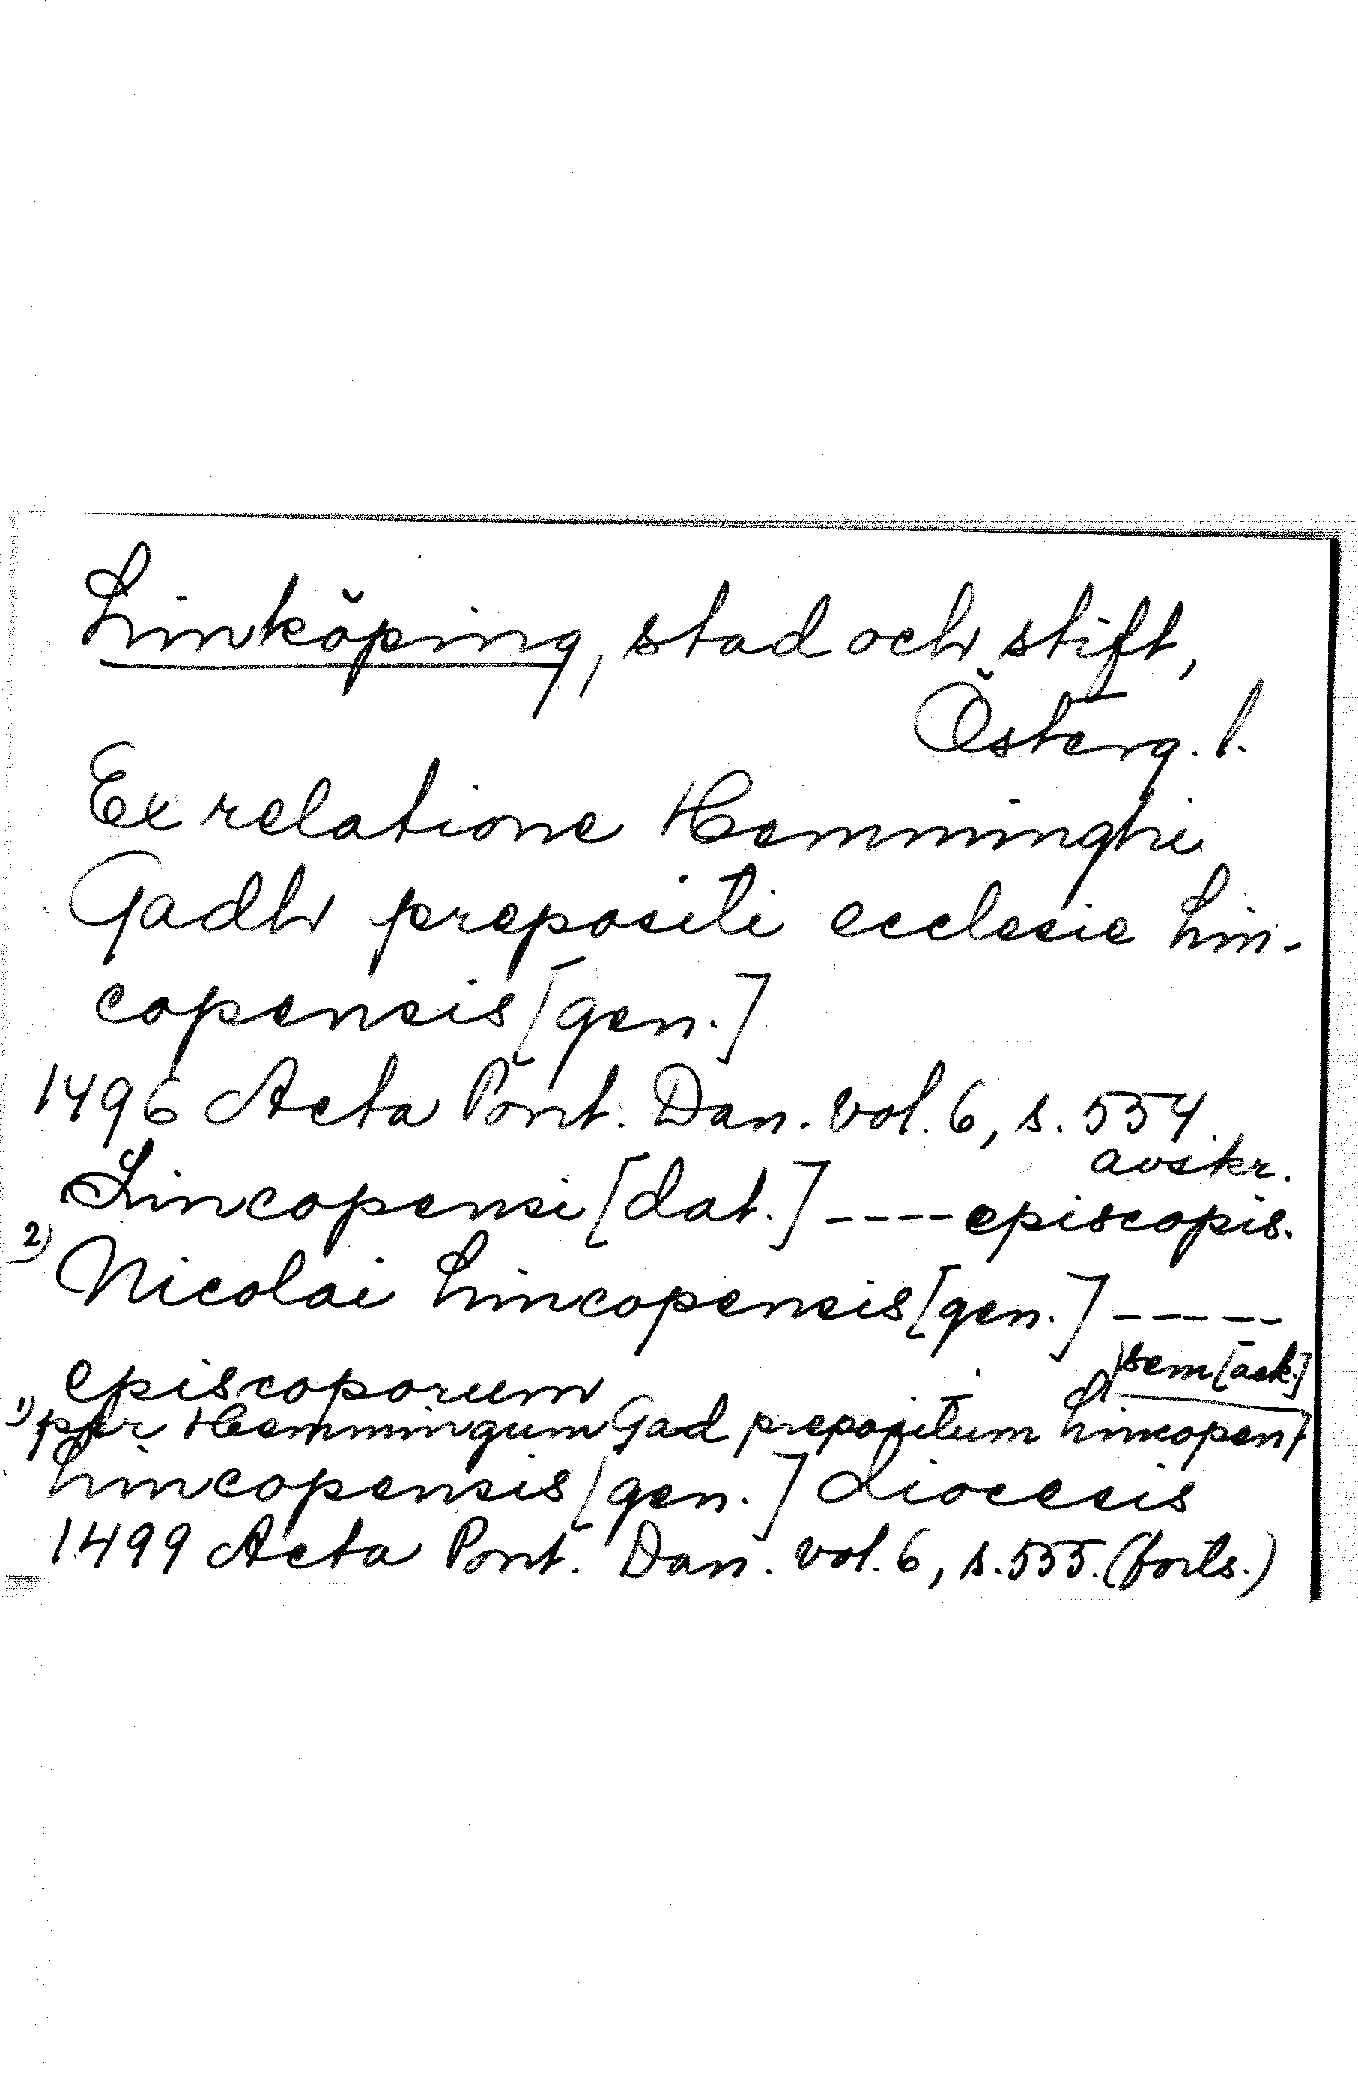 Linköping, stad och stift,
Österg. l.
Ex relatione Hemminghi
Gadh prepositi ecclesie Lin-
copensis [gen.]
1496 Acta Pont. Dan. vol. 6, s. 554.
avskr.
Lincopensi [dat.] ---- episcopis.
2) Nicolai Lincopensis [gen.] -----
episcoporum
sem [ack.]
1) per Hemmingum Gad prepositum Lincopen
Lincopensis [gen.] diocesis
1499 Acta Pont. Dan. vol. 6, s. 555. (forts.)